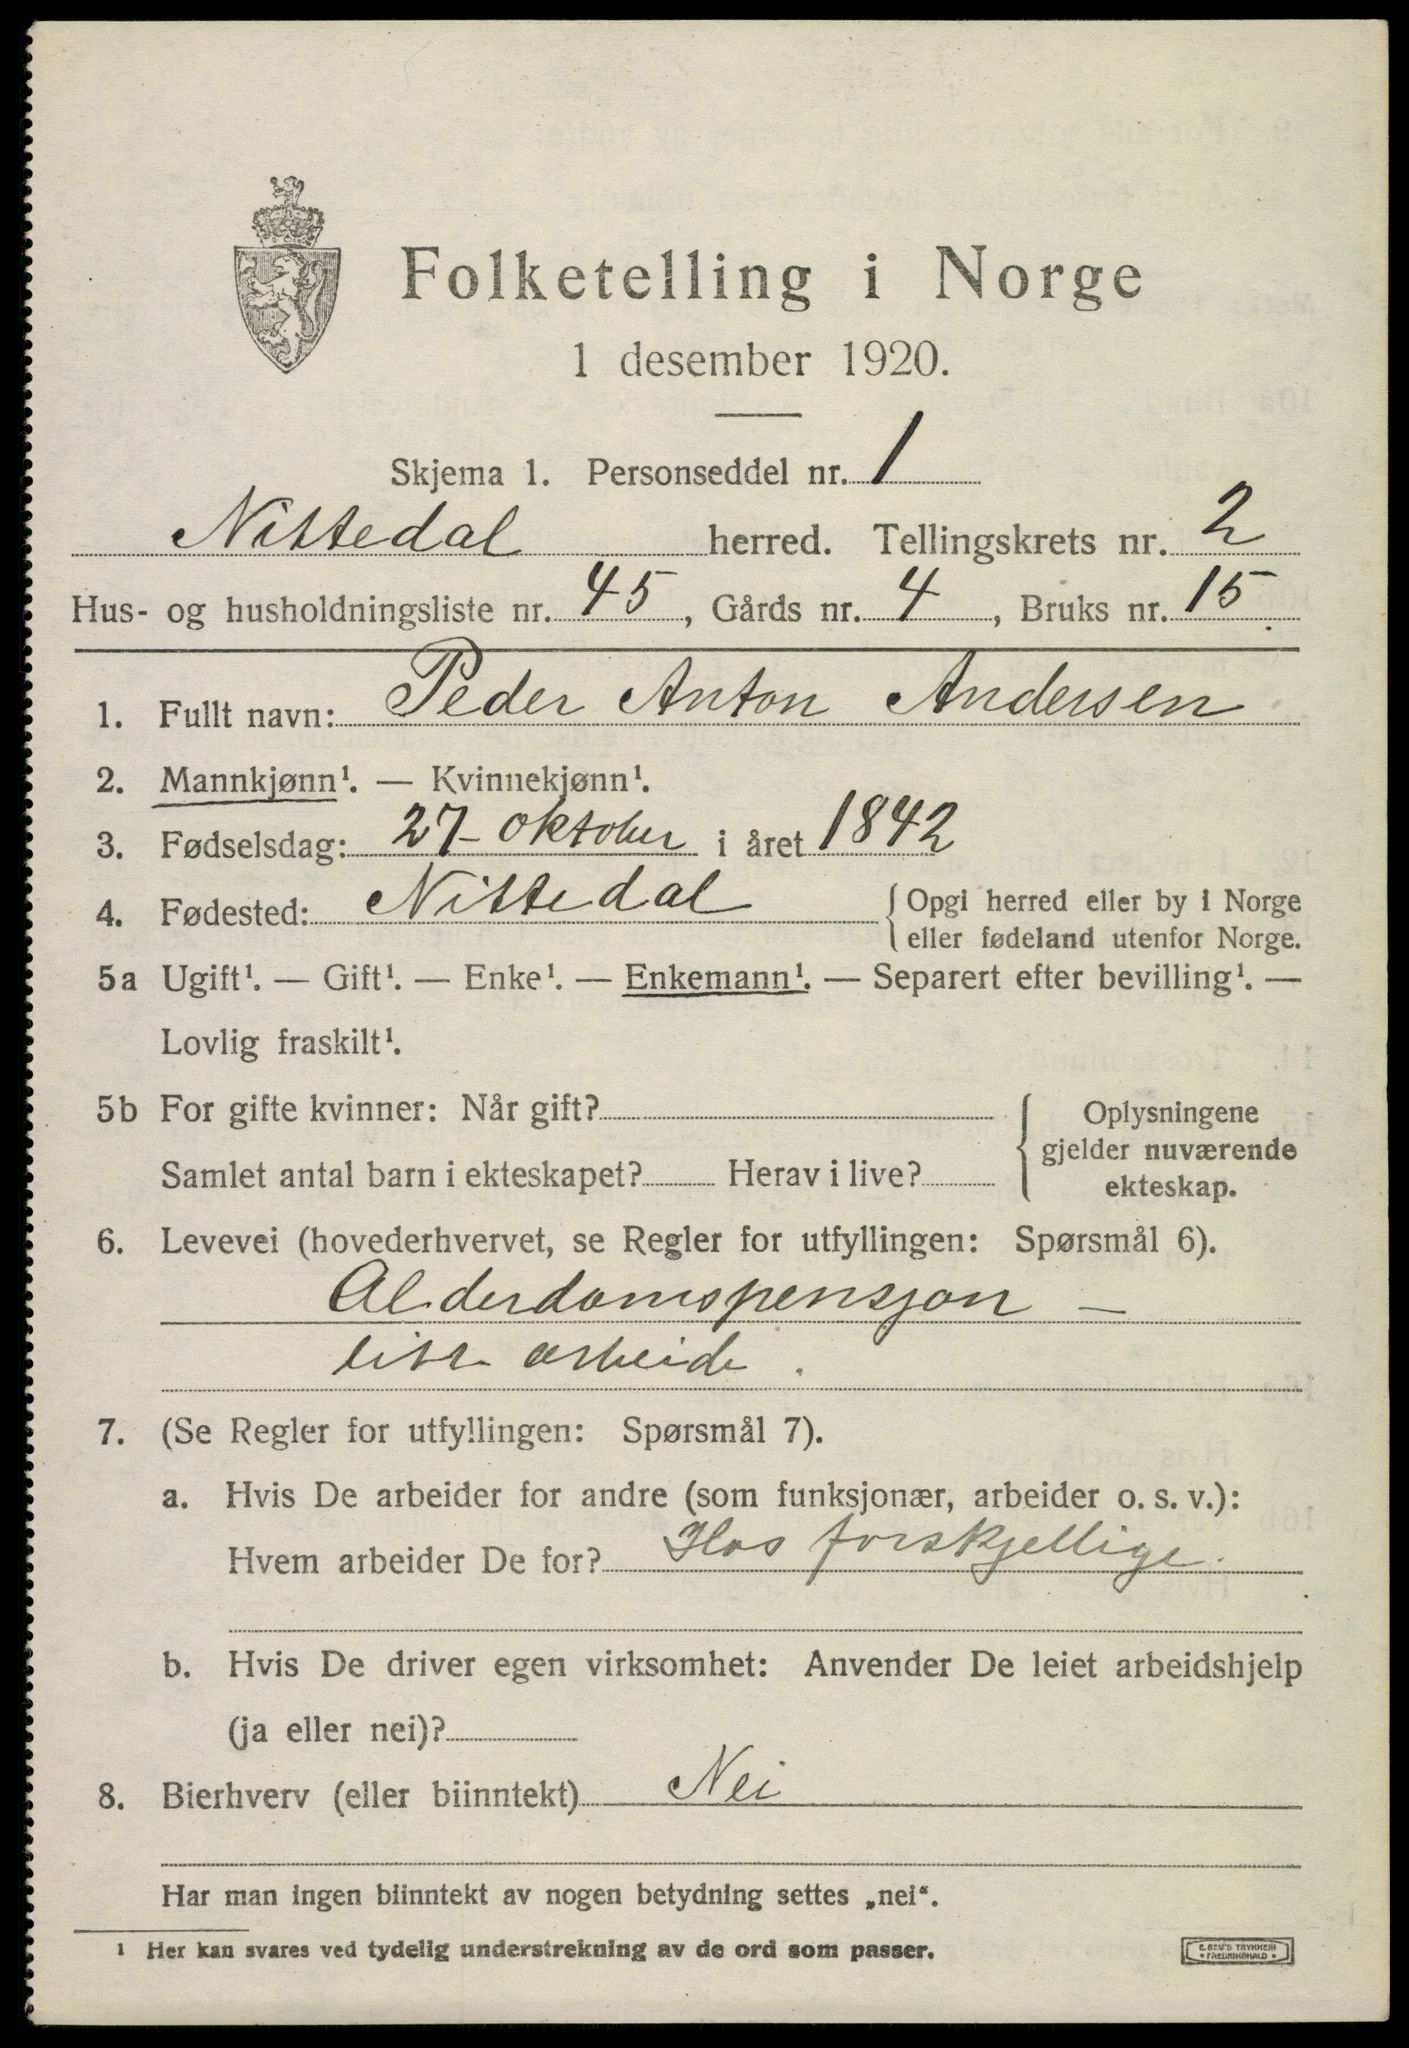 Folketelling i Norge
1 desember 1920.
Skjema 1. Personseddel nr. 1
Nittedal herred. Tellingskrets nr. 2
Hus- og husholdningsliste nr. 45, Gårds nr. 4, Bruks nr. 15
1. Fullt navn: Peder Anton Andersen
2. Mannkjønn¹. — Kvinnekjønn¹.
3. Fødselsdag: 27 - oktober i året 1842
4. Fødested: Nittedal { Opgi herred eller by i Norge
eller fødeland utenfor Norge.
5a Ugift¹. — Gift¹. — Enke¹. — Enkemann¹. — Separert efter bevilling¹. —
Lovlig fraskilt¹.
5b For gifte kvinner: Når gift? { Oplysningene
gjelder nuværende
Samlet antal barn i ekteskapet? Herav i live? ekteskap.
6. Levevei (hovederhvervet, se Regler for utfyllingen: Spørsmål 6).
Alderdomspensjon —
litt arbeide.
7. (Se Regler for utfyllingen: Spørsmål 7).
a. Hvis De arbeider for andre (som funksjonær, arbeider o. s. v.):
Hvem arbeider De for? Hos forskjellige.
b. Hvis De driver egen virksomhet: Anvender De leiet arbeidshjelp
(ja eller nei)?
8. Bierhverv (eller biinntekt) Nei
Har man ingen biinntekt av nogen betydning settes „nei“.
¹ Her kan svares ved tydelig understrekning av de ord som passer.
E. SEM'S TRYKKERI
* FREDRIKSHALD *